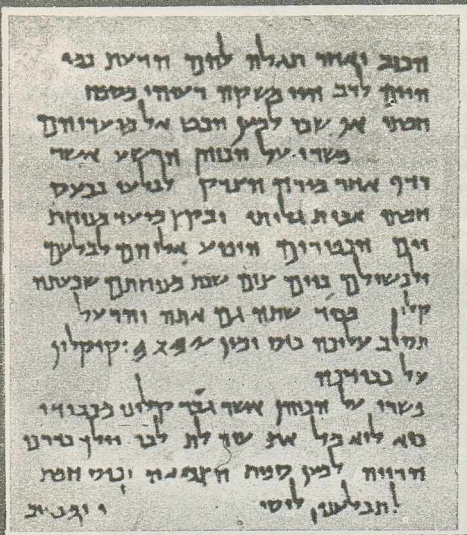 הכזב ואחר תגלה להם הדעת כמי
היים לרב הוי משקה רעהו מספח
חמתו אף שכר למען הבט אל מועדיהם
פשרו על הכוהן הרשע אשר
רדף אחר מורה הצדק לבלעו בכעס
חמתו אבית גלותו ובקץ מועד מנוחת
יום הכפורים הופיע אליהם לבלעם
ולכשילם ביום צום שבת מנוחתם שבעתה
קלון שתה גם אתה והרעל
תסוב עליכה כוס ימין 𐤉𐤄𐤅𐤄 וקיקלון
על כבודכה
פשרו על הכוהן אשר גבר קלונו מכבודו
כיא לוא מל את עורלת לבו וילך בדרכי
הרויה למען ספות הצמאה וכוס חמת
תבלענו לוסיף